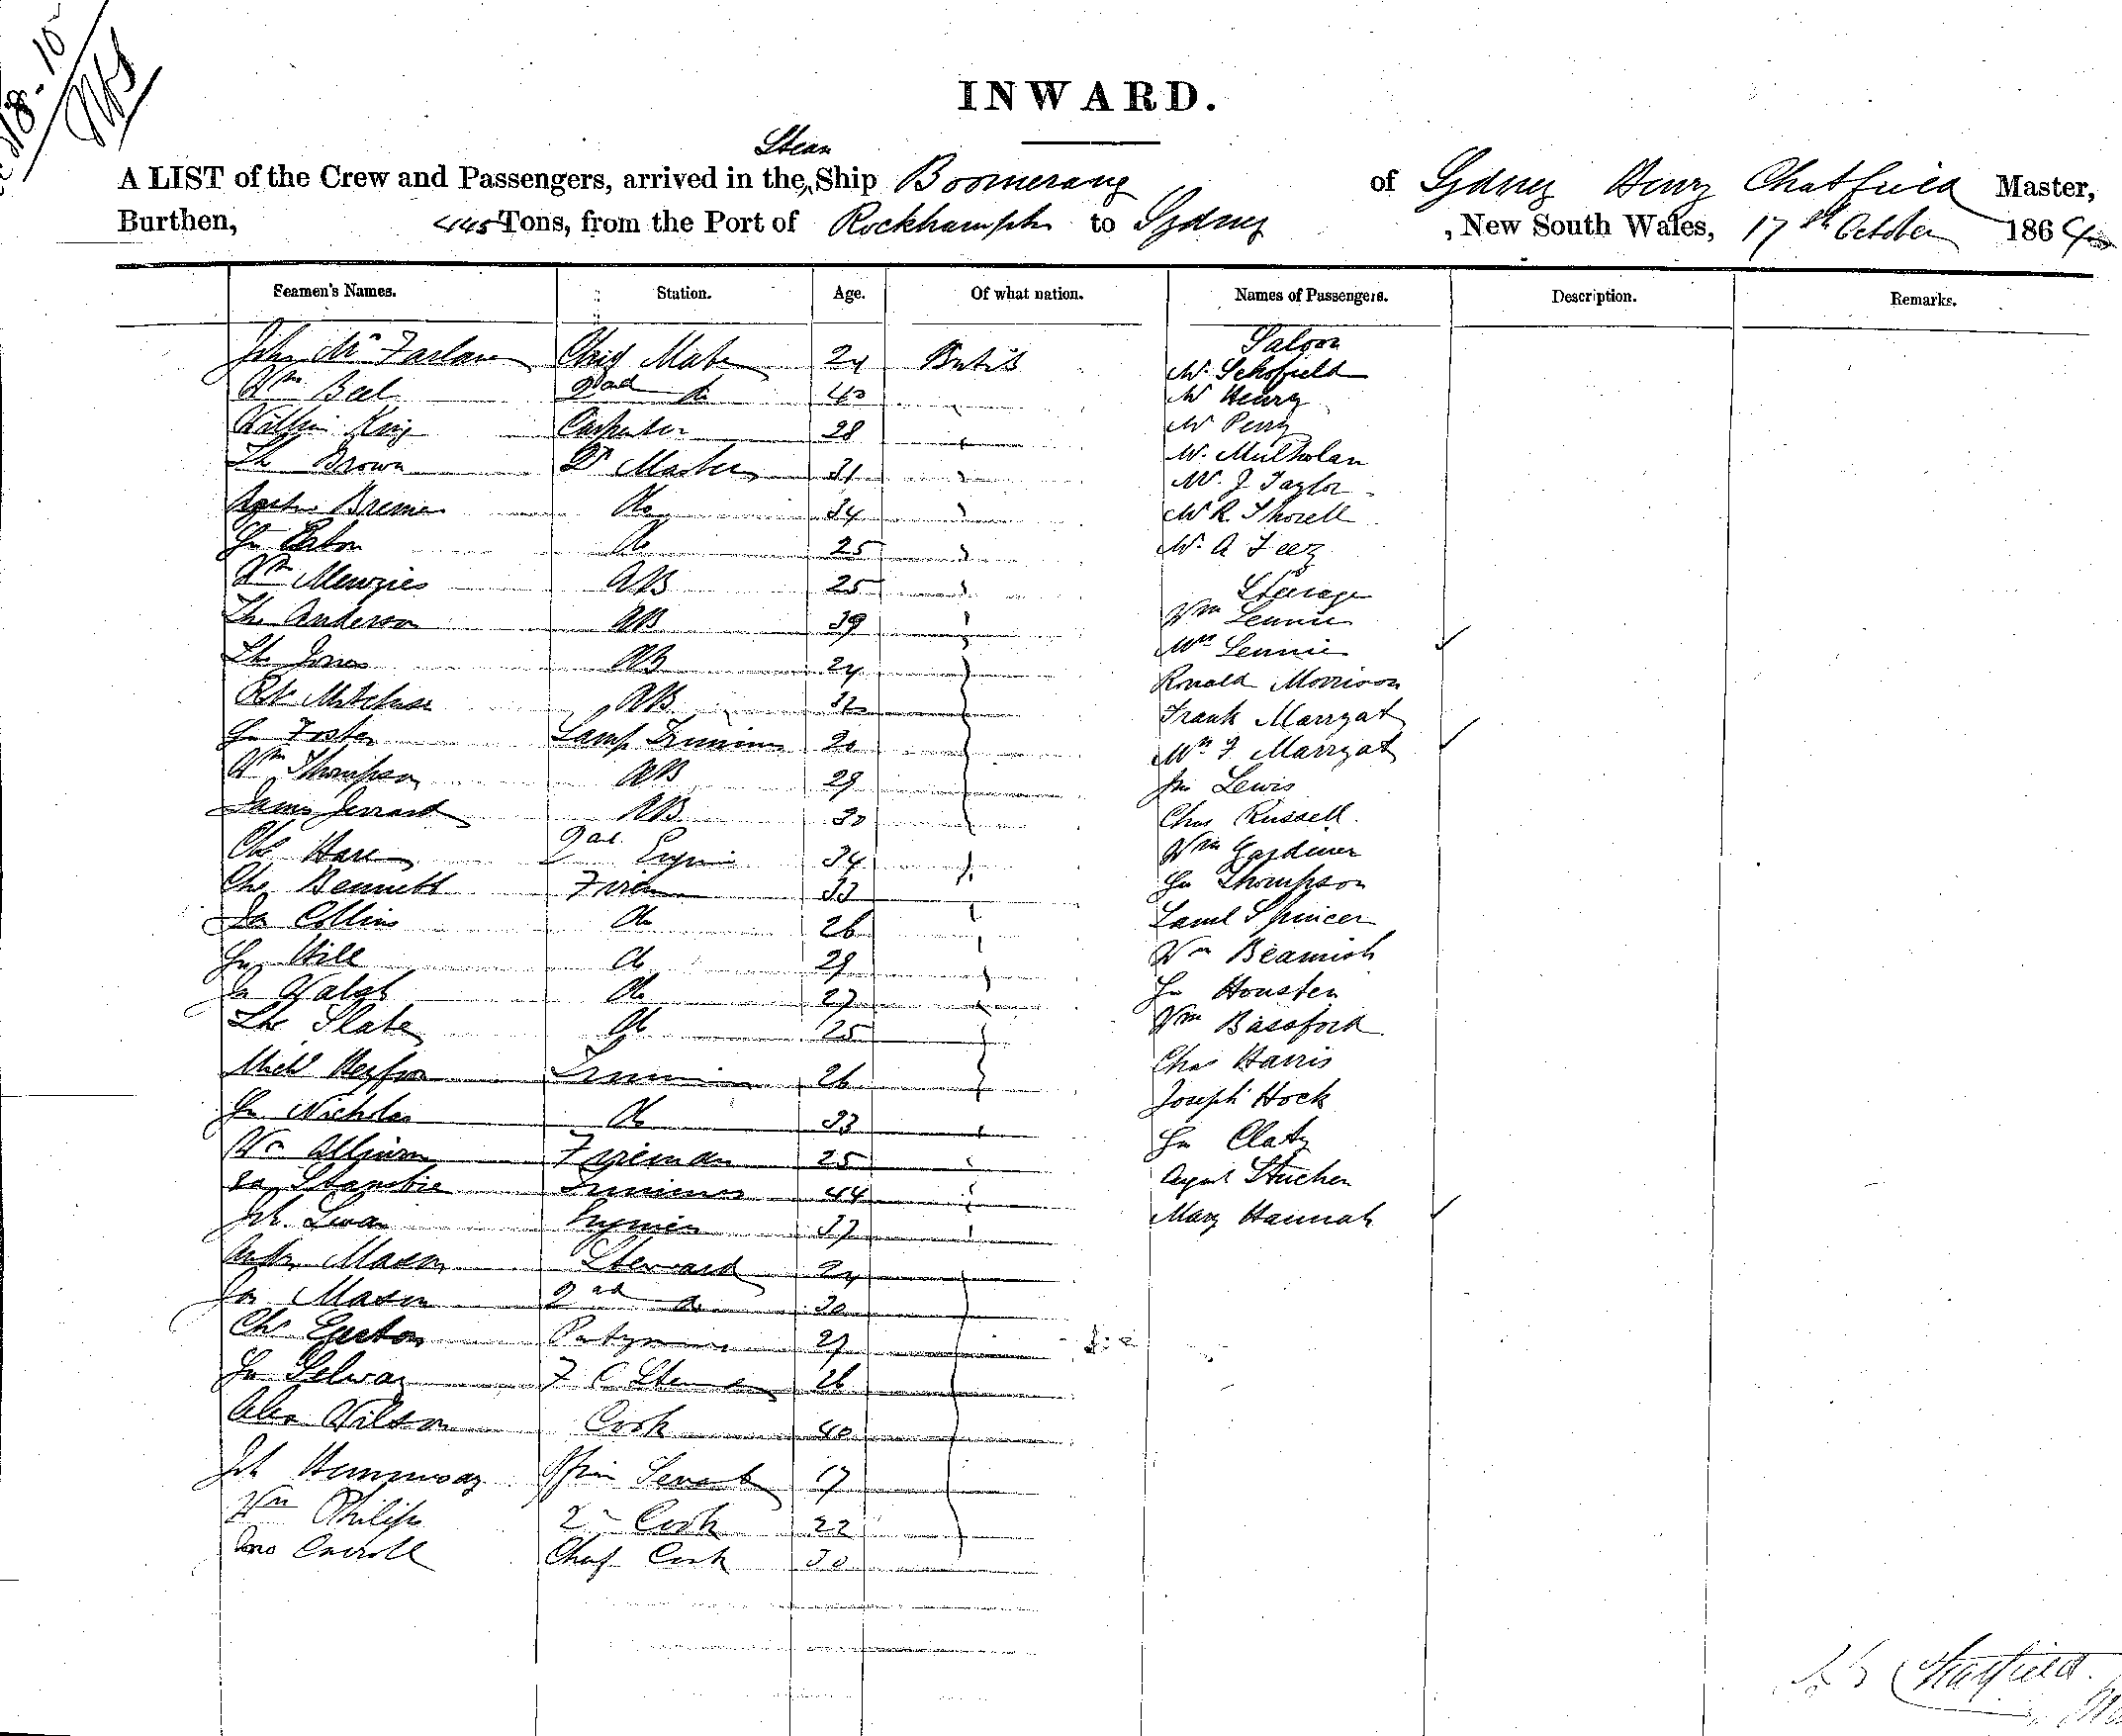 18-10
INWARD.
Steam
A LIST of the Crew and Passengers, arrived in the Ship Boomerang of Sydney Henry Chatfield Master,
Burthen, 445 Tons, from the Port of Rockhampton to Sydney, New South Wales, 17th October 1864
Seamen's Names. Station. Age. Of what nation. Names of Passengers. Description. Remarks.
Saloon
John McFarlane Chief Mate 24 British Mr Schofield
Wm Beel 2nd do 40 Mr Henry
William King Carpenter 28 Mr Perry
Th Brown Qr Master 31 Mr Mulholan
Bremer do 34 Mr J Taylor
Mr R Thozell
Jn do 25 Mr A Feez
Wm Menzies AB 25 Steerage
Tho Anderson AB 39 Wm Lennie
Mrs Lennie
Tho Jones AB 24 Ronald Morrison
Rbt AB 32 Frank Marryat
Jn Foster Lamp Trimmer 20 Mrs F Marryat
Wm Thompson AB 29 Jno Lewis
James Jerrard AB 30 Chas Russell
Chs Hare 2nd Engin 34 Wm Gardiner
Chs Bennett Firem 33 Jn Thompson
Jas Collins do 26 Saml Spincer
Jn Hill do 29 Wm Beamish
Js Walsh do 27 Jn Housten
Tho Slate do 25 Wm Bassford
Michl Trimmer 26 Chas Harris
Jn Nicholas do 33 Joseph Hock
Wm Fireman 25 Jn Claty
Trimmer 44 August Stuchen
Jh Swan Engineer 37 Mary Hannah
Mason Steward 24
Js Mason 2nd do 30
Chs Pantryman 27
Jn Selway F C Stew 26
Alex Wilson Cook 40
Jh Hemmway Servant 17
Wm Philips 2 Cook 22
Jno Carroll Chief Cook 30
Chatfield